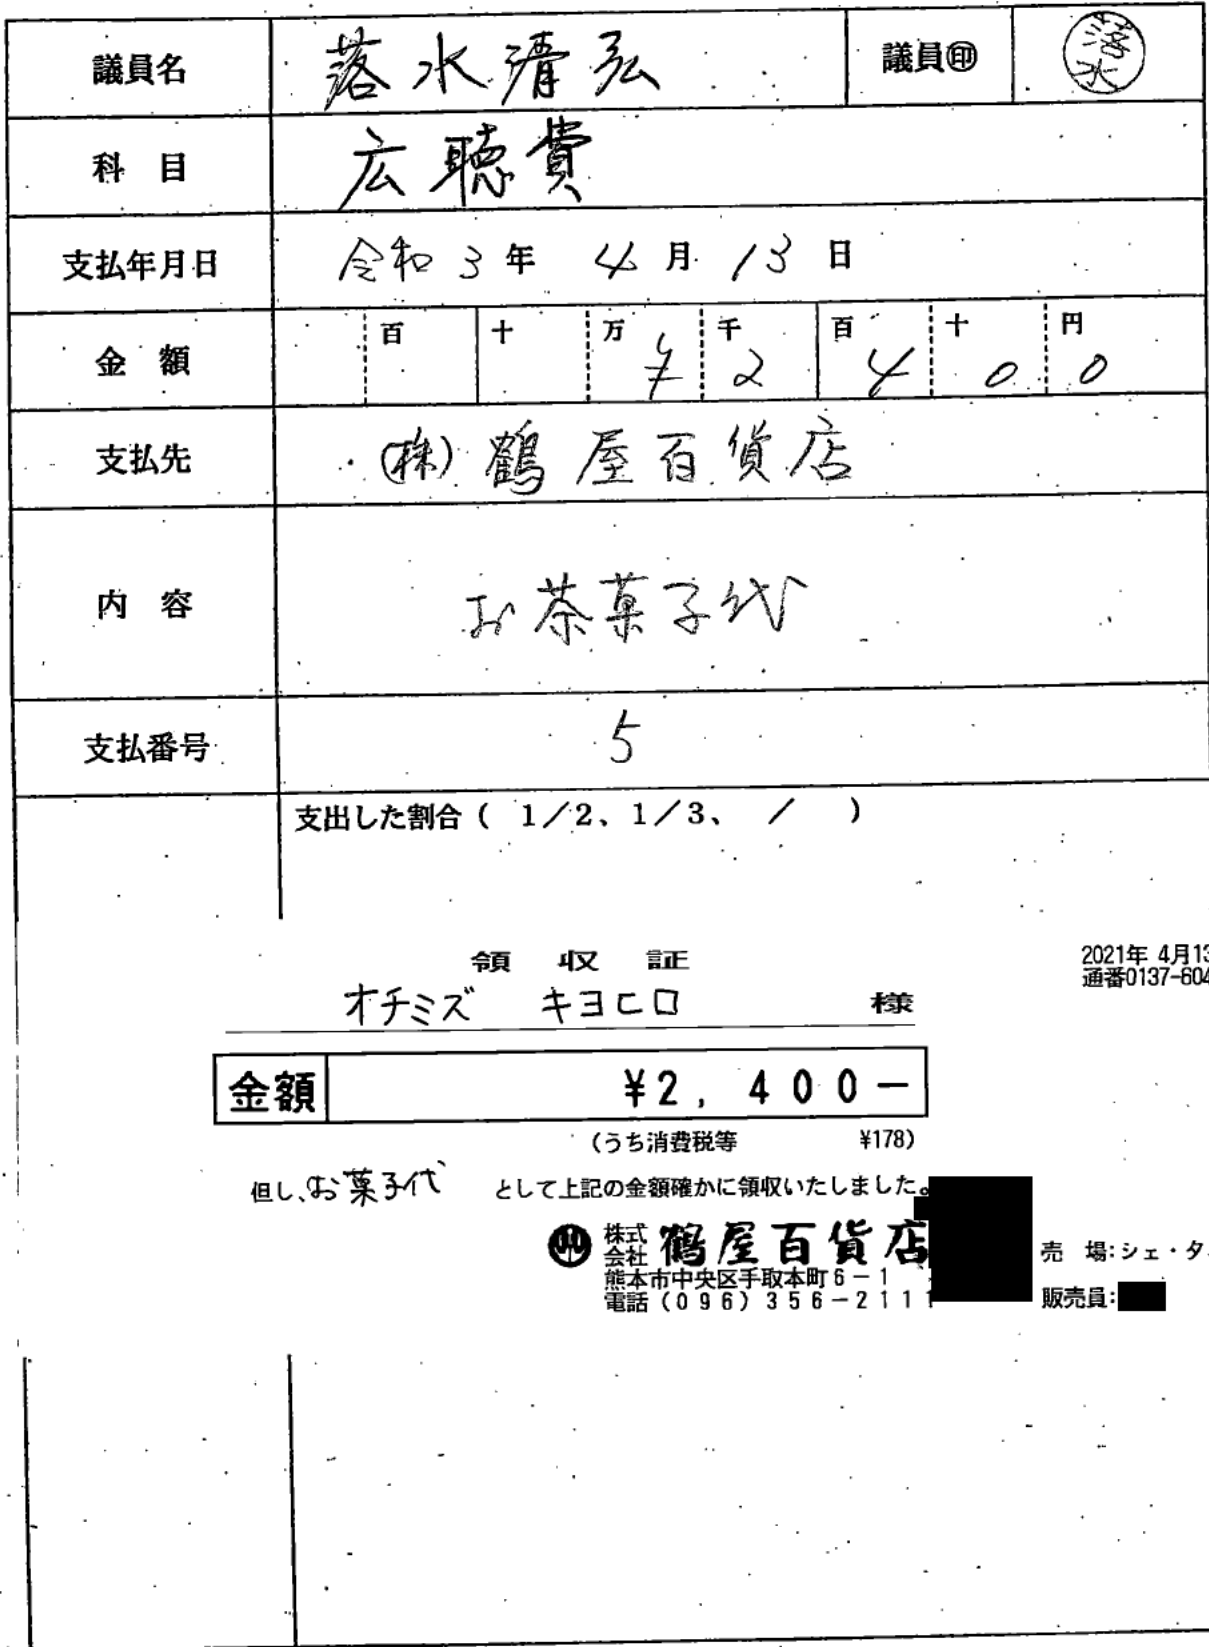 議員名 落水清弘 議員㊞ 落水
科目 広聴費
支払年月日 令和3年 4月 13日
金額 百 十 万 千 百 十 円
¥2400
支払先 (株)鶴屋百貨店
内容 お茶菓子代
支払番号 5
支出した割合( 1/2、1/3、 / )
領収証
2021年 4月13
通番0137-604
オチミズ キヨヒロ 様
金額 ¥2,400-
(うち消費税等 ¥178)
但し、お菓子代 として上記の金額確かに領収いたしました。
株式会社 鶴屋百貨店
売 場:シェ・タ
熊本市中央区手取本町6-1
電話(096)356-2111
販売員: